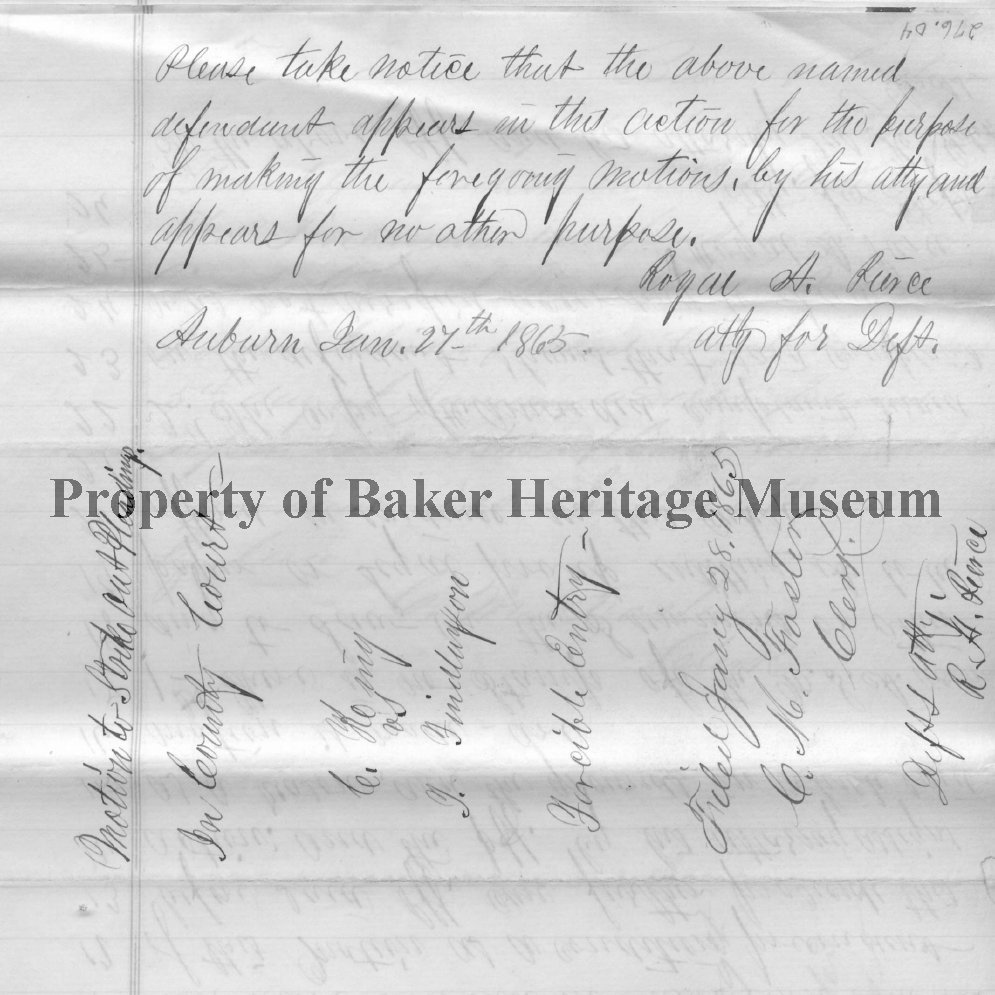 276.04
Please take notice that the above named
defendant appears in this action for the purpose
of making the foregoing motions, by his atty and
appears for no other purpose.
Royal H. Pierce
Auburn Jan. 27th 1865. atty for Deft.
Property of Baker Heritage Museum
Motion to Strike out Pleadings.
In County Court
C. King
vs
T. Findlayson
Forcible Entry
Filed Jany 28. 1865
C. M. Foster
Clerk.
Defts atty.
R. H. Pierce